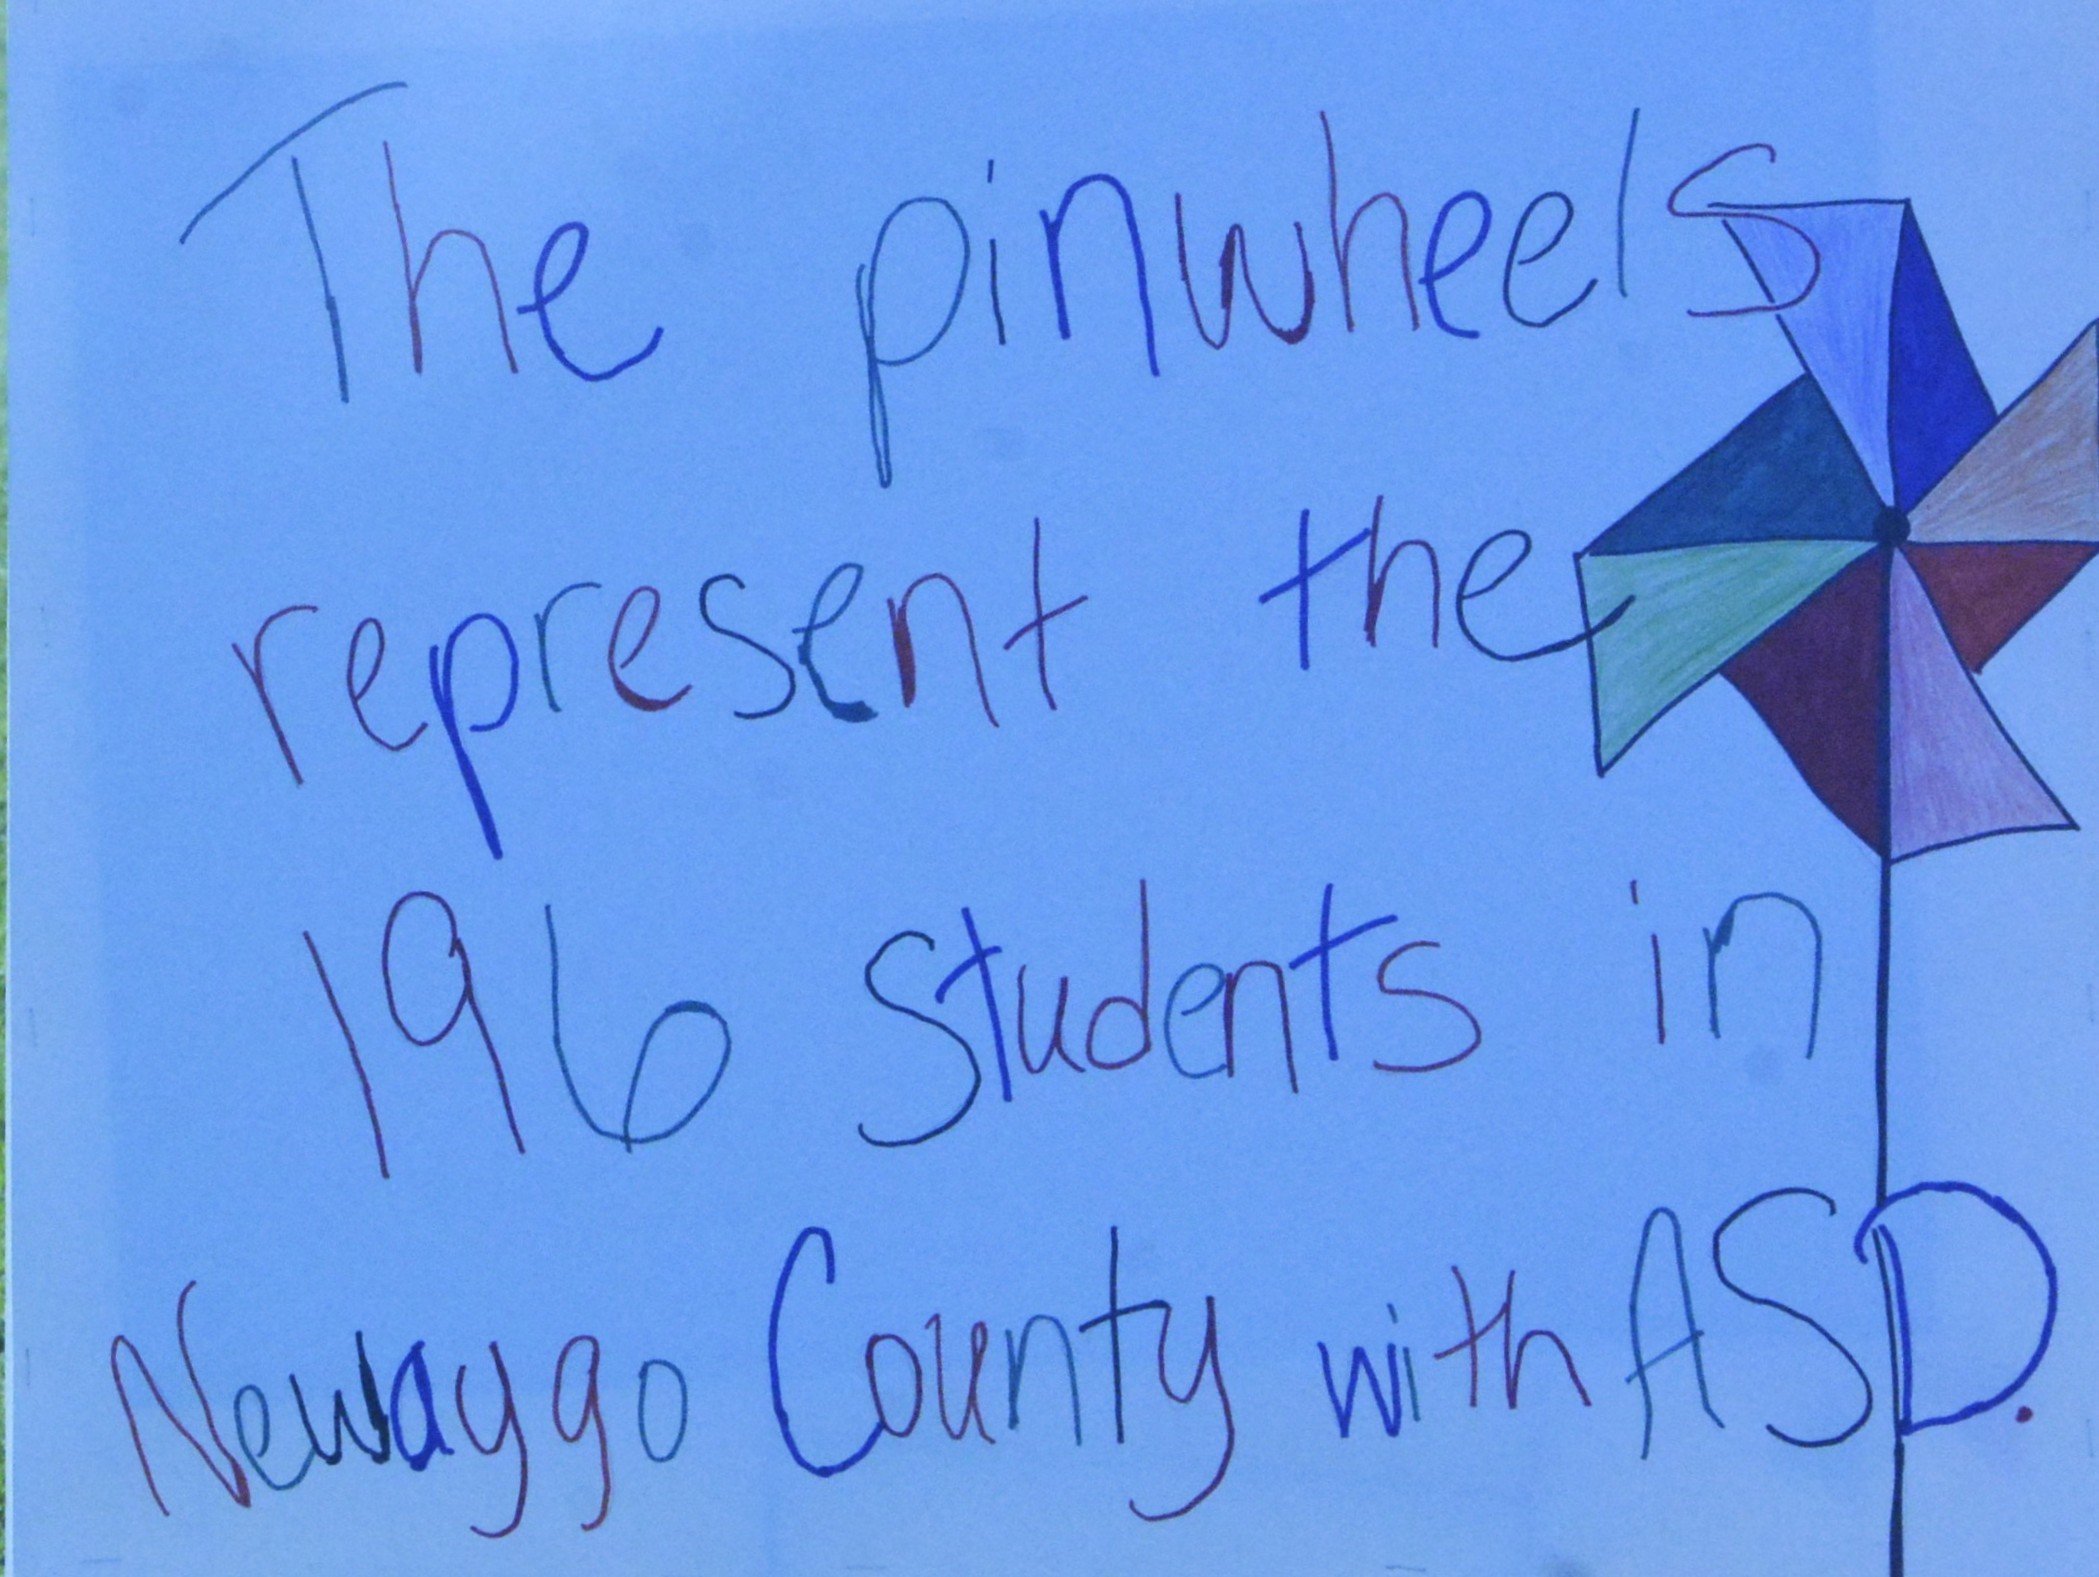 The pinwheels
represent the
196 students in
Newaygo County with ASD.